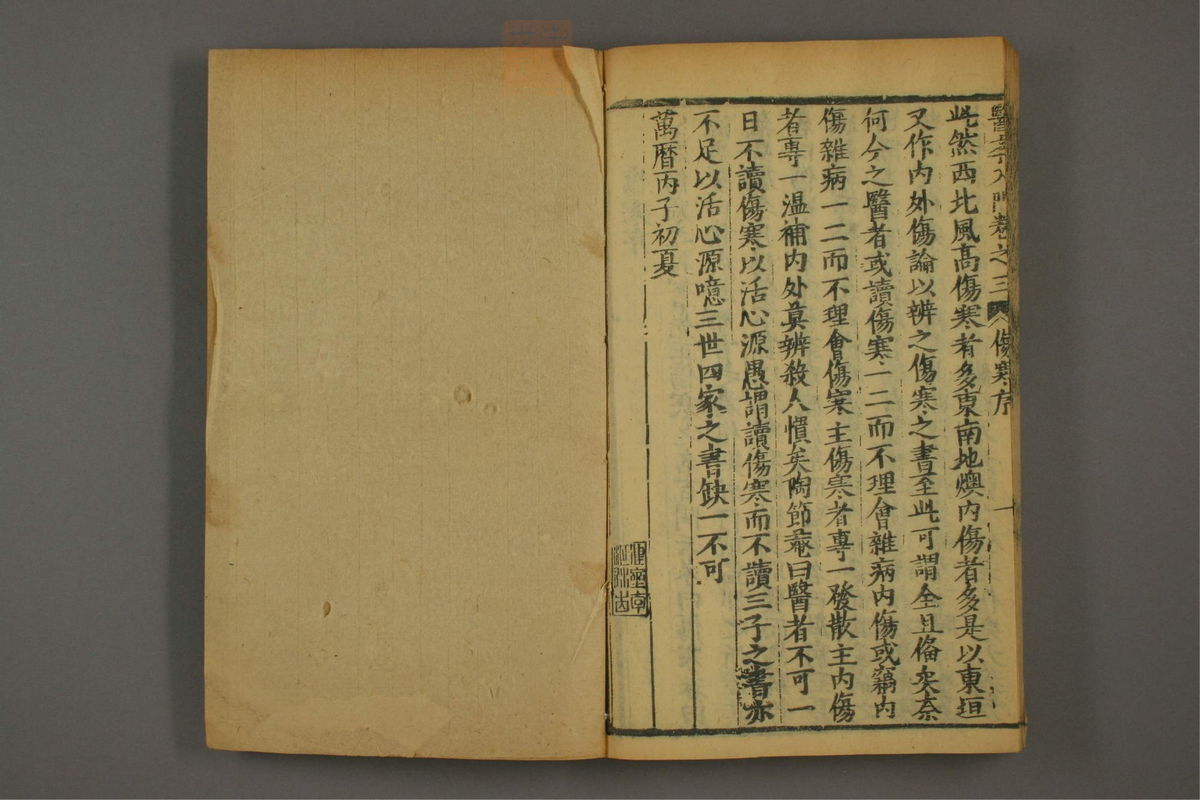 醫學入門卷之三 傷寒序 一
此然西北風高傷寒者多東南地燠内傷者多是以東垣
又作内外傷論以辨之傷寒之書至此可謂全且備矣奈
何今之醫者或讀傷寒一二而不理會雜病内傷或竊内
傷雜病一二而不理會傷寒主傷寒者專一發散主内傷
者專一温補内外莫辨殺人慣矣陶節菴曰醫者不可一
日不讀傷寒以活心源愚謂讀傷寒而不讀三子之書亦
不足以活心源噫三世四家之書缺一不可
萬暦丙子初夏